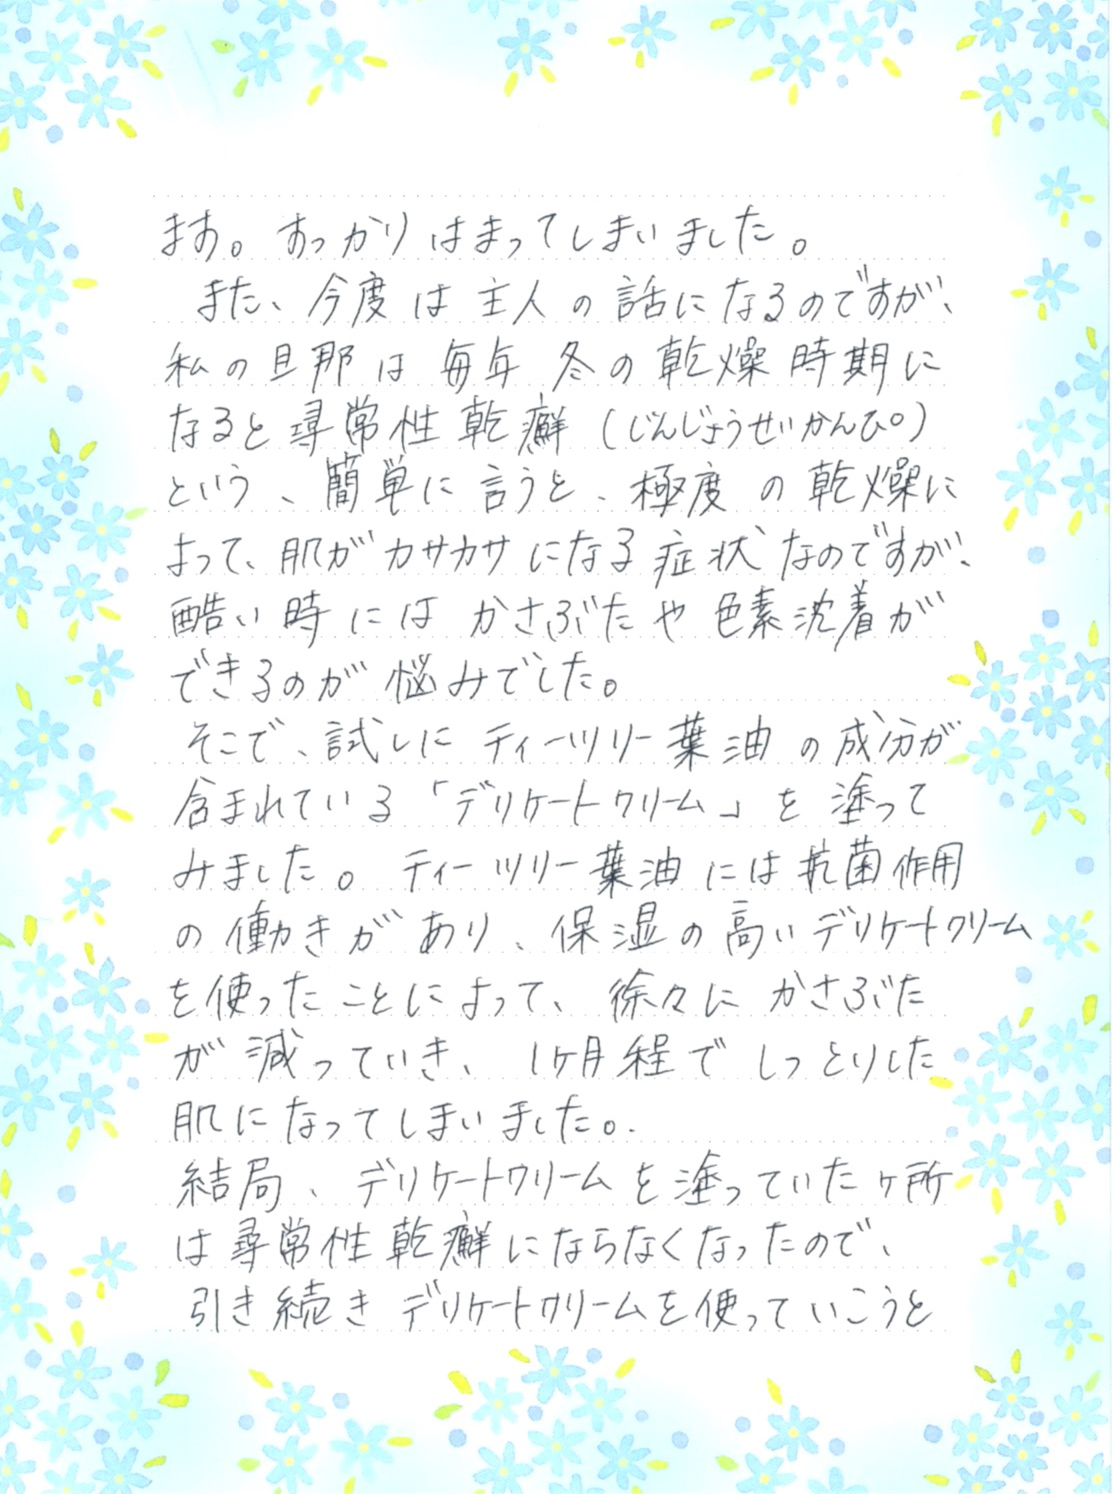 ます。すっかりはまってしまいました。
また、今度は主人の話になるのですが、
私の旦那は毎年冬の乾燥時期に
なると尋常性乾癬(じんじょうせいかんぴ。)
という、簡単に言うと、極度の乾燥に
よって、肌がカサカサになる症状なのですが、
酷い時にはかさぶたや色素沈着が
できるのが悩みでした。
そこで、試しにティーツリー葉油の成分が
含まれている「デリケートクリーム」を塗って
みました。ティーツリー葉油には抗菌作用
の働きがあり、保湿の高いデリケートクリーム
を使ったことによって、徐々にかさぶた
が減っていき、1ヶ月程でしっとりした
肌になってしまいました。
結局、デリケートクリームを塗っていたヶ所
は尋常性乾癬にならなくなったので、
引き続きデリケートクリームを使っていこうと